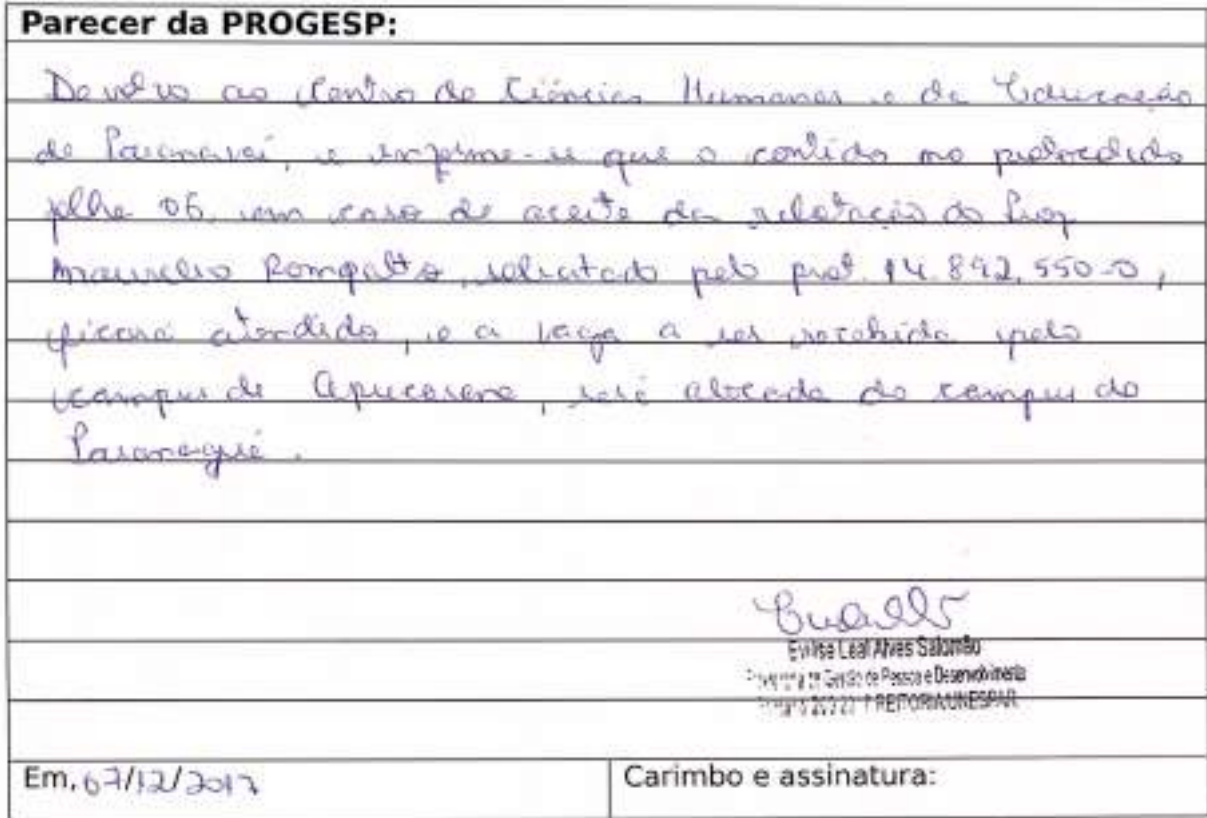 Parecer da PROGESP:
Devolvo ao Centro de Ciências Humanas e da Educação
de Paranavaí, e informe-se que o contido no protocolado
folha 06, em caso de aceite da relotação do Prof
Maurilio Rompatto, solicitado pelo prot. 14.892.550-0,
ficará atendido, e a vaga a ser recebida pelo
campus de Apucarana, será alocada do campus de
Paranaguá.
Evilise Leal Alves Salomão
de Gestão de Pessoas e Desenvolvimento
REITORIA/UNESPAR
Em, 07/12/2017
Carimbo e assinatura: